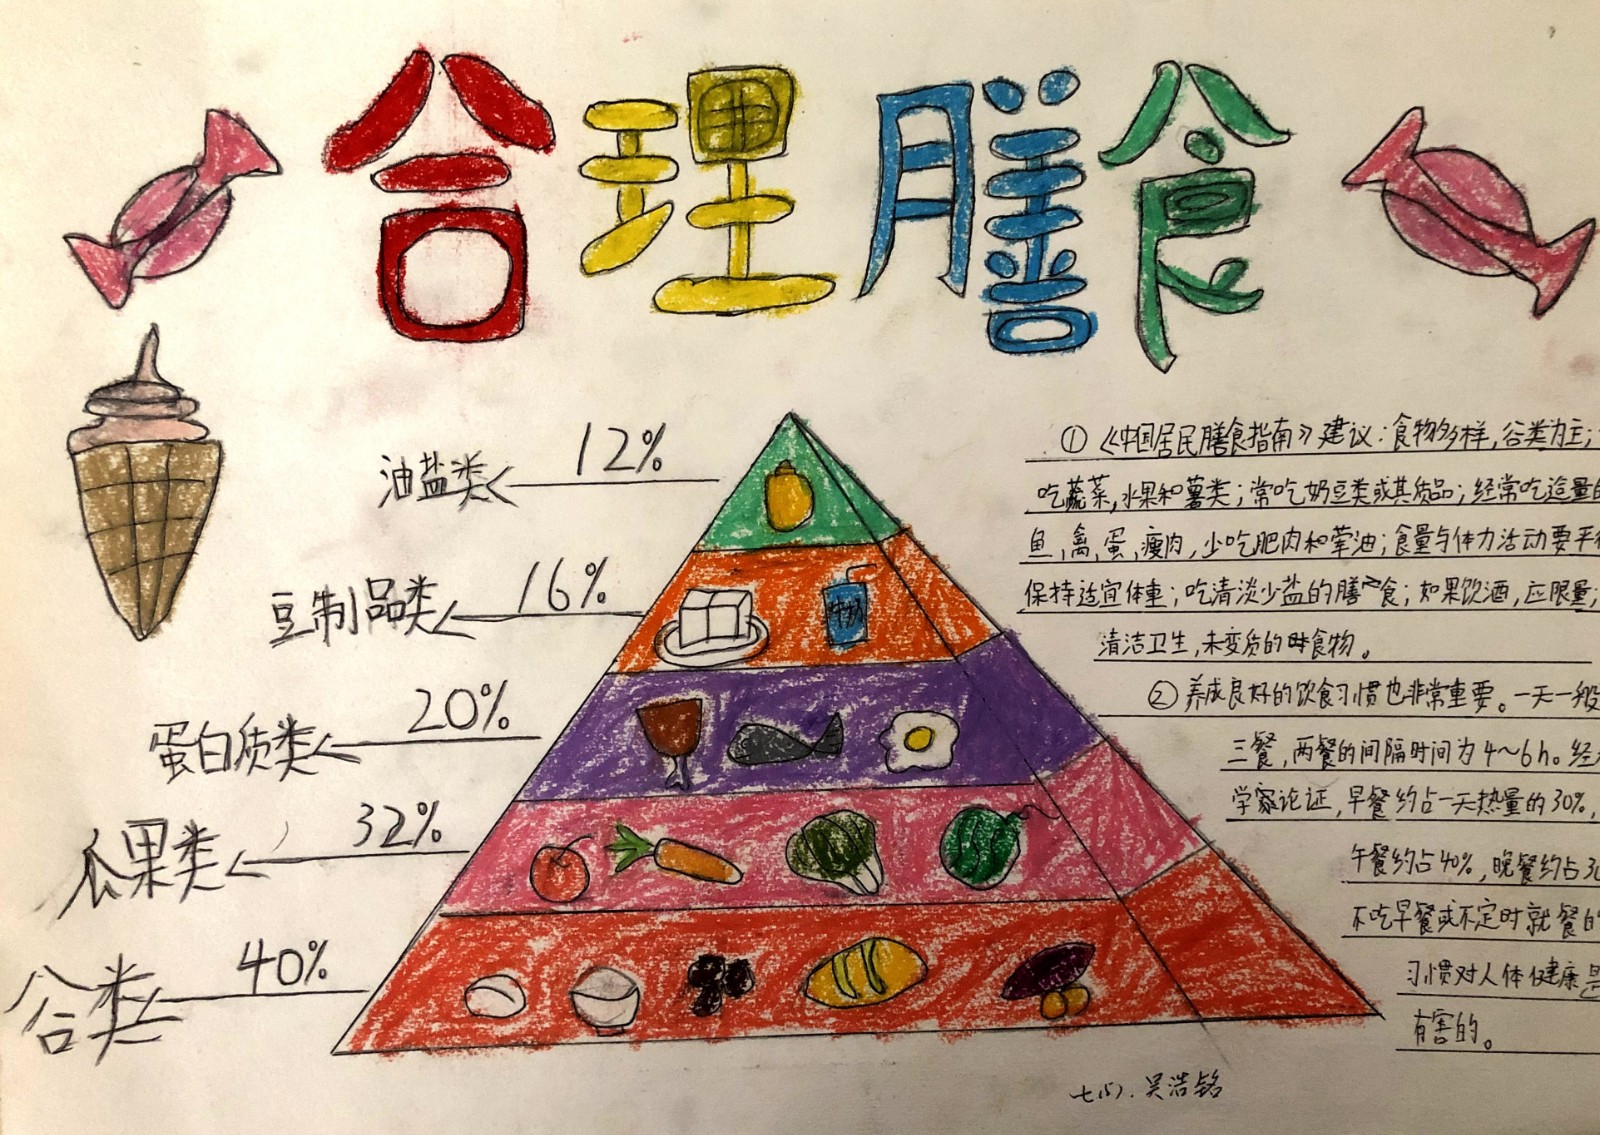 合理膳食
油盐类 12%
豆制品类 16%
牛奶
蛋白质类 20%
瓜果类 32%
谷类 40%
①《中国居民膳食指南》建议：食物多样，谷类为主；
吃蔬菜，水果和薯类；常吃奶豆类或其质品；经常吃适量的
鱼，禽，蛋，瘦肉，少吃肥肉和荤油；食量与体力活动要平
保持适宜体重；吃清淡少盐的膳食；如果饮酒，应限量；
清洁卫生，未变质的食物。
②养成良好的饮食习惯也非常重要。一天一般
三餐，两餐的间隔时间为4～6h。经
学家论证，早餐约占一天热量的30%，
午餐约占40%，晚餐约占3
不吃早餐或不定时就餐的
习惯对人体健康是
有害的。
七(5).吴浩铭